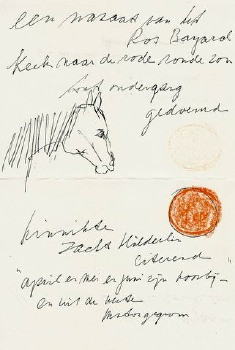 een nazaat van het
Ros Bayard
keek naar de rode ronde zon
tot ondergang
gedoemd
hinnikte
zacht Hölderlin
citerend
"april en mei en juni zijn voorbij –
en uit de